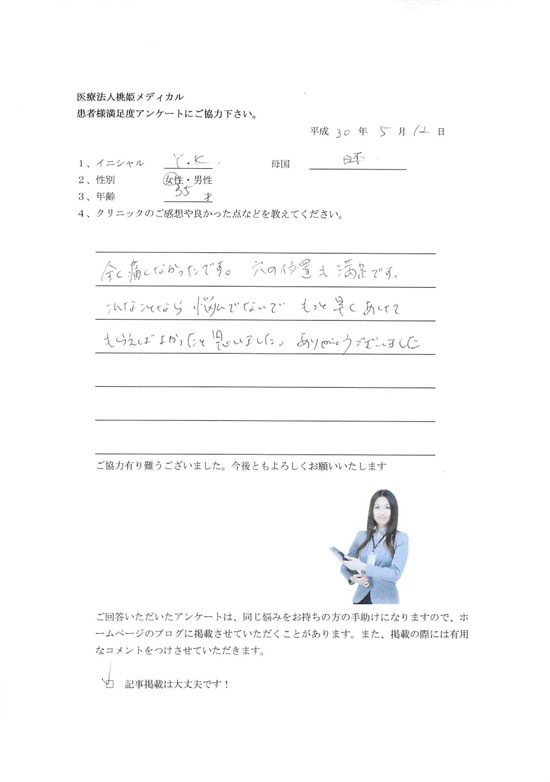 医療法人桃姫メディカル
患者様満足度アンケートにご協力下さい。
平成 30 年 5 月 12 日
1、イニシャル Y.K. 母国 日本
2、性別 女性・男性
3、年齢 35 才
4、クリニックのご感想や良かった点などを教えてください。
全く痛くなかったです。穴の位置も満足です。
こんなことなら悩んでないでもっと早くあけて
もらえばよかったと思いました。ありがとうございました
ご協力有り難うございました。今後ともよろしくお願いいたします
ご回答いただいたアンケートは、同じ悩みをお持ちの方の手助けになりますので、ホ
ームページのブログに掲載させていただくことがあります。また、掲載の際には有用
なコメントをつけさせていただきます。
記事掲載は大丈夫です！